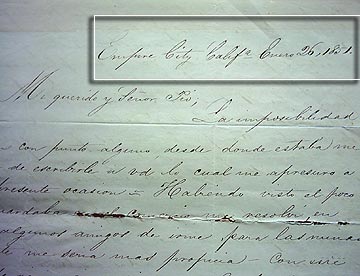 Empire City Califª Enero 26, 1851
Mi querido y Señor Pio,
La imposibilidad
con punto alguno, desde donde estaba me
de escribirle a vd lo cual me apresuro a
presente ocasion = Habiendo visto el poco
me resolví, en
algunos amigos de irme para las minas
me seria mas propicia - Con